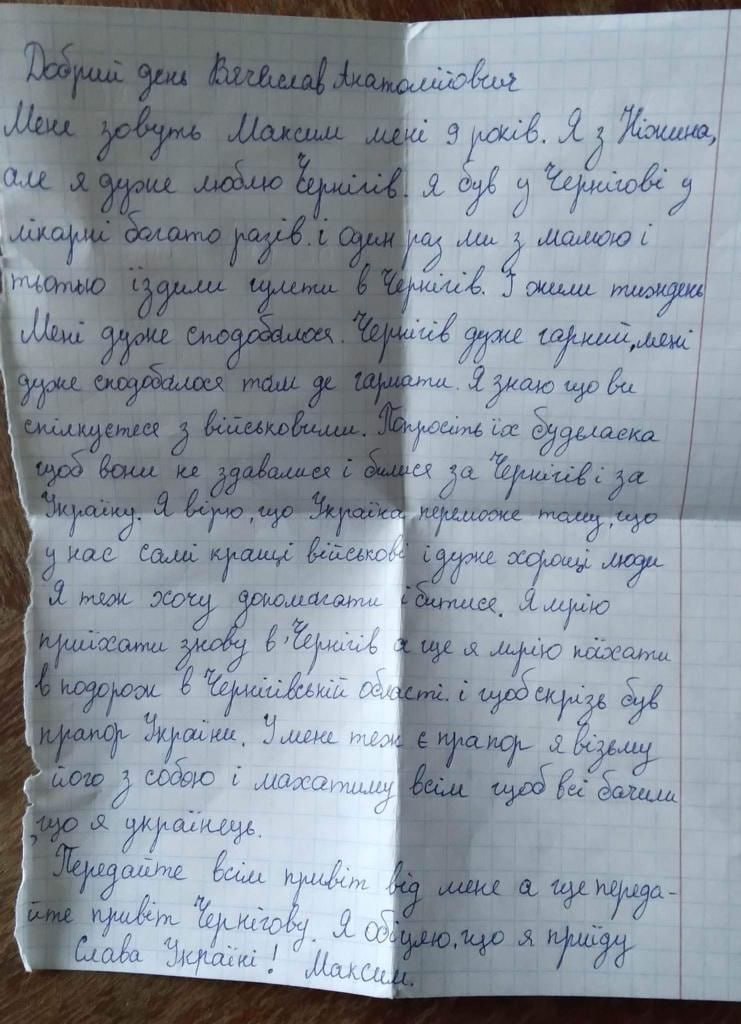 Добрий день Вячеслав Анатолійович
Мене зовуть Максим мені 9 років. Я з Ніжина,
але я дуже люблю Чернігів. Я був у Чернігові у
лікарні багато разів. і один раз ми з мамою і
тьотью їздили гуляти в Чернігів. І жили тиждень
Мені дуже сподобалося. Чернігів дуже гарний, мені
дуже сподобалося там де гармати. Я знаю що ви
спілкуєтеся з військовими. Попросіть їх будьласка
щоб вони не здавалися і билися за Чернігів і за
Україну. Я вірю, що Україна переможе тому, що
у нас самі кращі військові і дуже хороші люди
Я теж хочу допомагати і битися. Я мрію
приїхати знову в Чернігів а ще я мрію поїхати
в подорож в Чернігівській області. і щоб скрізь був
прапор України. У мене теж є прапор я візьму
його з собою і махатиму всім щоб всі бачили
що я українець.
Передайте всім привіт від мене а ще переда-
йте привіт Чернігову. Я обіцяю, що я приїду
Слава Україні! Максим.